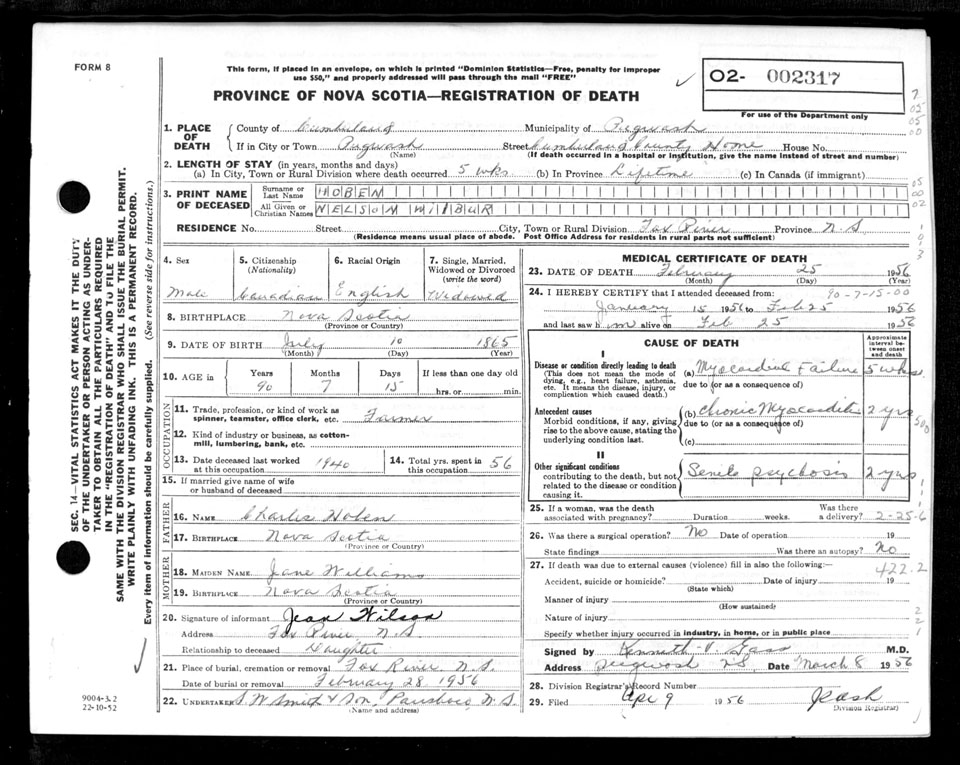 FORM 8
This form, if placed in an envelope, on which is printed "Dominion Statistics—Free, penalty for improper
use $50," and properly addressed will pass through the mail "FREE"
02- 002317
PROVINCE OF NOVA SCOTIA—REGISTRATION OF DEATH
For use of the Department only
1. PLACE OF DEATH
County of Cumberland Municipality of Pugwash
If in City or Town Pugwash Street Cumberland County Home House No.
(Name) (If death occurred in a hospital or institution, give the name instead of street and number)
2. LENGTH OF STAY (in years, months and days)
(a) In City, Town or Rural Division where death occurred 5 wks (b) In Province Lifetime (c) In Canada (if immigrant)
3. PRINT NAME OF DECEASED
Surname or Last Name HOBEN
All Given or Christian Names NELSON MILBUR
RESIDENCE No. Street City, Town or Rural Division Fox River Province N S
(Residence means usual place of abode. Post Office Address for residents in rural parts not sufficient)
4. Sex Male
5. Citizenship (Nationality) Canadian
6. Racial Origin English
7. Single, Married, Widowed or Divorced (write the word) Widowed
8. BIRTHPLACE Nova Scotia
(Province or Country)
9. DATE OF BIRTH July 10 1865
(Month) (Day) (Year)
10. AGE in Years Months Days If less than one day old
90 7 15 hrs. or min.
OCCUPATION
11. Trade, profession, or kind of work as spinner, teamster, office clerk, etc. Farmer
12. Kind of industry or business, as cotton-mill, lumbering, bank, etc.
13. Date deceased last worked at this occupation 1940
14. Total yrs. spent in this occupation 56
15. If married give name of wife or husband of deceased
FATHER
16. NAME Charles Hoben
17. BIRTHPLACE Nova Scotia
(Province or Country)
MOTHER
18. MAIDEN NAME Jane Williams
19. BIRTHPLACE Nova Scotia
(Province or Country)
20. Signature of informant Jean Wilson
Address Fox River N S
Relationship to deceased Daughter
21. Place of burial, cremation or removal Fox River N. S.
Date of burial or removal February 28 1956
22. UNDERTAKER S. W. Smith & Son, Parrsboro, N. S.
(Name and address)
MEDICAL CERTIFICATE OF DEATH
23. DATE OF DEATH February 25 1956
(Month) (Day) (Year)
24. I HEREBY CERTIFY that I attended deceased from: 90-7-15-00
January 15 1956 to Feb 25 1956
and last saw h im alive on Feb 25 1956
CAUSE OF DEATH
Approximate interval between onset and death
I
Disease or condition directly leading to death
(This does not mean the mode of dying, e.g., heart failure, asthenia, etc. It means the disease, injury, or complication which caused death.)
(a) Myocardial Failure 5 wks
due to (or as a consequence of)
Antecedent causes
Morbid conditions, if any, giving rise to the above cause, stating the underlying condition last.
(b) Chronic Myocarditis 2 yrs
due to (or as a consequence of)
(c)
II
Other significant conditions
contributing to the death, but not related to the disease or condition causing it.
Senile psychosis 2 yrs
25. If a woman, was the death associated with pregnancy? Duration weeks. Was there a delivery? 2-25-6
26. Was there a surgical operation? No Date of operation 19
State findings Was there an autopsy? No
27. If death was due to external causes (violence) fill in also the following:— 422.2
Accident, suicide or homicide? Date of injury 19
(State which)
Manner of injury
(How sustained)
Nature of injury
Specify whether injury occurred in industry, in home, or in public place
Signed by Kenneth V. Gass M.D.
Address Pugwash N S Date March 8 1956
28. Division Registrar's Record Number
29. Filed Apr 9 1956
(Division Registrar)
SEC. 14—VITAL STATISTICS ACT MAKES IT THE DUTY
OF THE UNDERTAKER OR PERSON ACTING AS UNDER-
TAKER TO OBTAIN ALL THE PARTICULARS REQUIRED
IN THE "REGISTRATION OF DEATH" AND TO FILE THE
SAME WITH THE DIVISION REGISTRAR WHO SHALL ISSUE THE BURIAL PERMIT.
WRITE PLAINLY WITH UNFADING INK. THIS IS A PERMANENT RECORD.
Every item of information should be carefully supplied. (See reverse side for instructions.)
9004-3.2
22-10-52